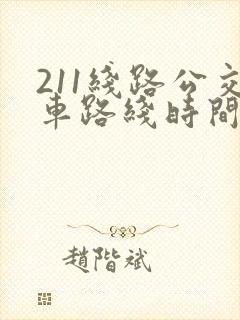 211綫路公交
車路綫時間
趙階斌